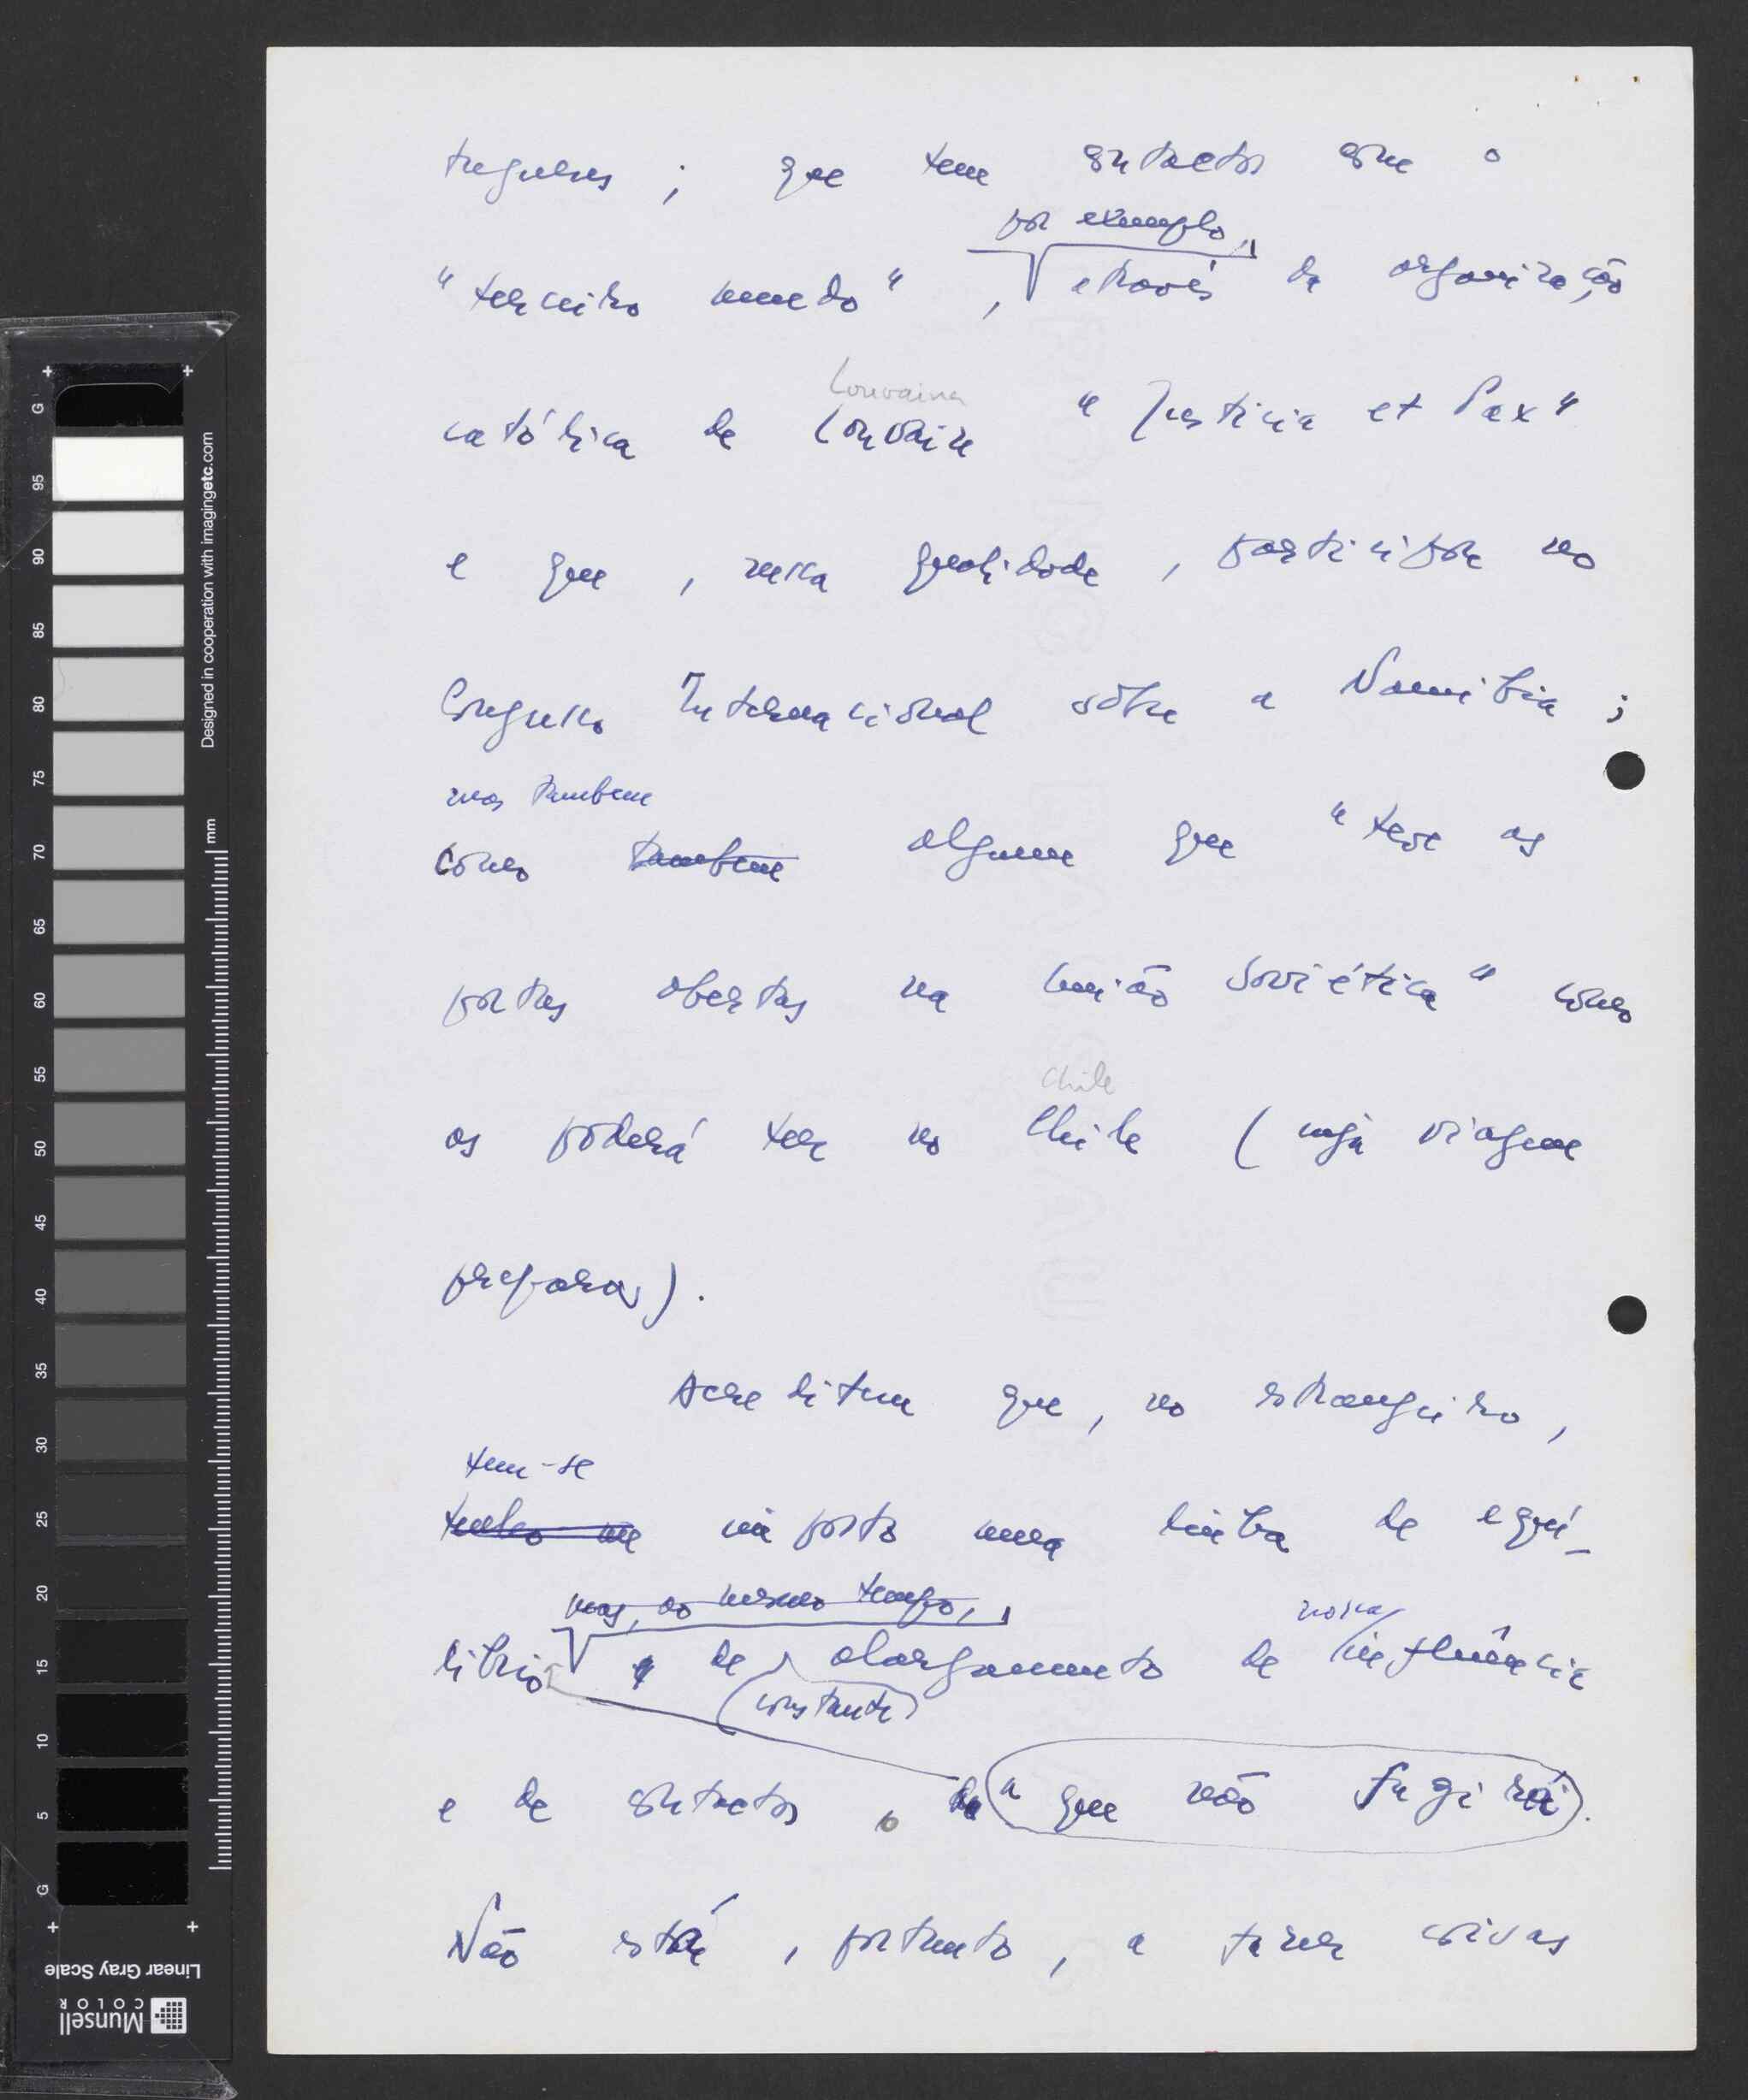 tugueses ; que tem contactos com o
por exemplo,
"terceiro mundo" , através da organização
Louvaina
católica de Louvain "Justicia et Pax"
e que, nessa qualidade, participou no
Congresso Internacional sôbre a Namibia ;
mas tambem
como tambem alguem que "teve as
portas abertas na União Soviética" como
Chile
as poderá ter no Chile ( cuja viagem
preparou).
Acreditem que, no estrangeiro,
tem-se
tenho-me imposto uma linha de equi-
mas, ao mesmo tempo,
librio e de alargamento de nossa influência
(constante)
e de contactos, a que não fugirá.
Não está, portanto, a fazer coisas
G
95
90
85
80
75
70
65
60
55
50
45
40
35
30
25
20
15
10
5
G
mm
Designed in cooperation with imagingetc.com
Linear Gray Scale
Munsell
COLOR